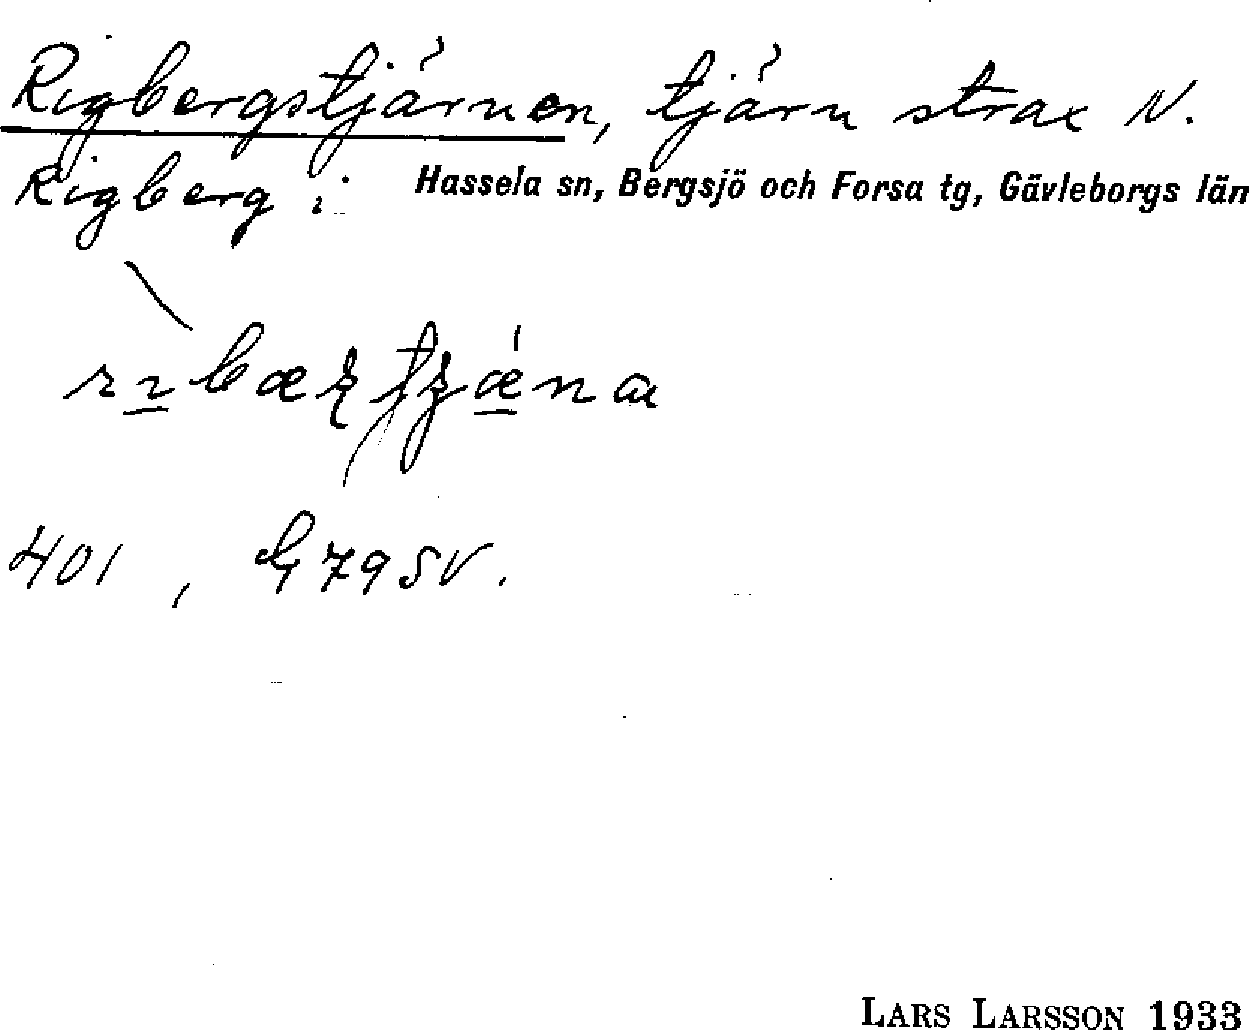 Rigbergstjärnen, tjärn strax N.
Rigberg i Hassela sn, Bergsjö och Forsa tg, Gävleborgs län
401, G79SV.
LARS LARSSON 1933